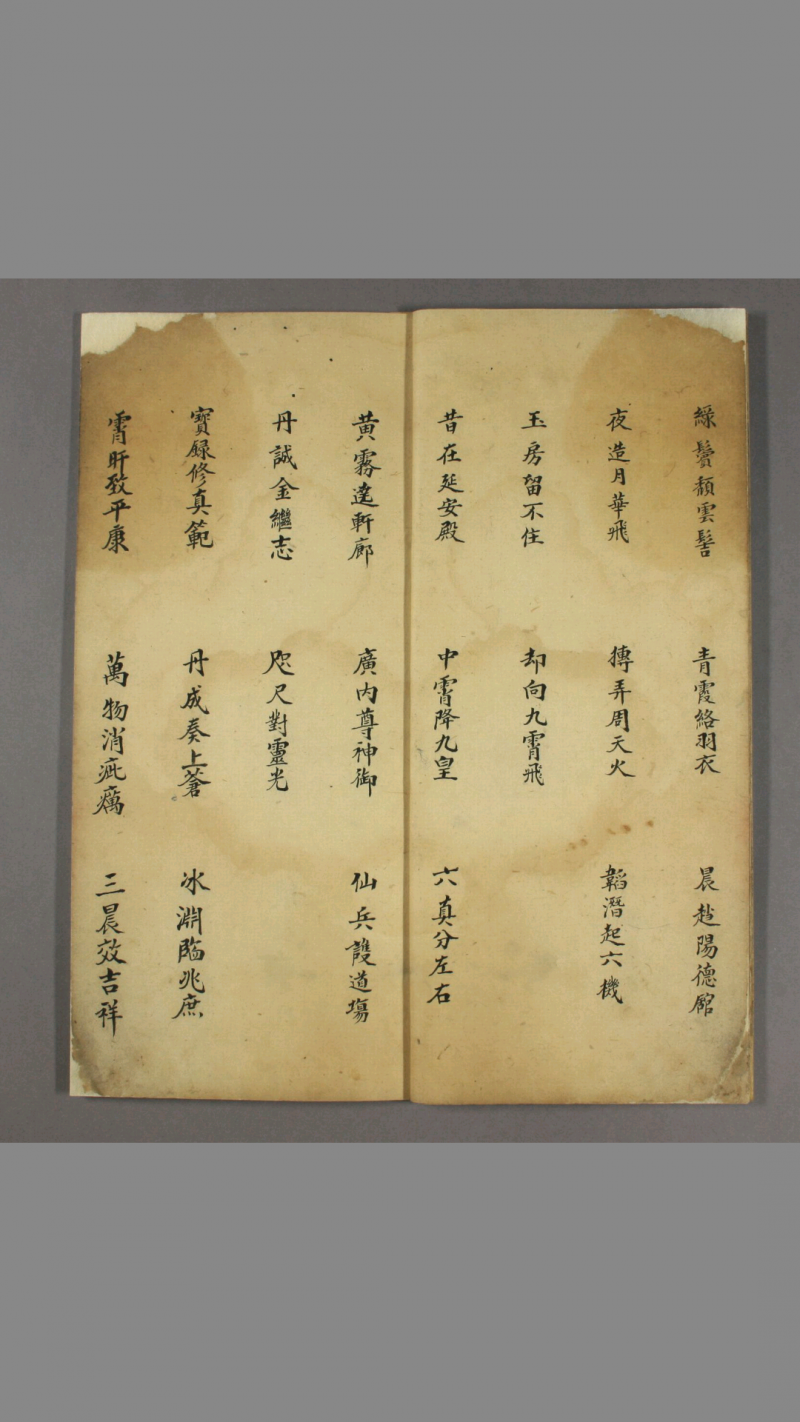 綠鬢頽雲髻　青霞絡羽衣　晨趂陽德館
夜造月華飛　摶弄周天火　韜潛起六機
玉房留不住　却向九霄飛
昔在延安殿　中霄降九皇　六真分左右
黄霧遶軒廊　廣内尊神御　仙兵護道塲
丹誠金繼志　咫尺對靈光
寳籙修真範　丹成奏上蒼　冰淵臨兆庶
霄旰致平康　萬物消疵癘　三晨效吉祥